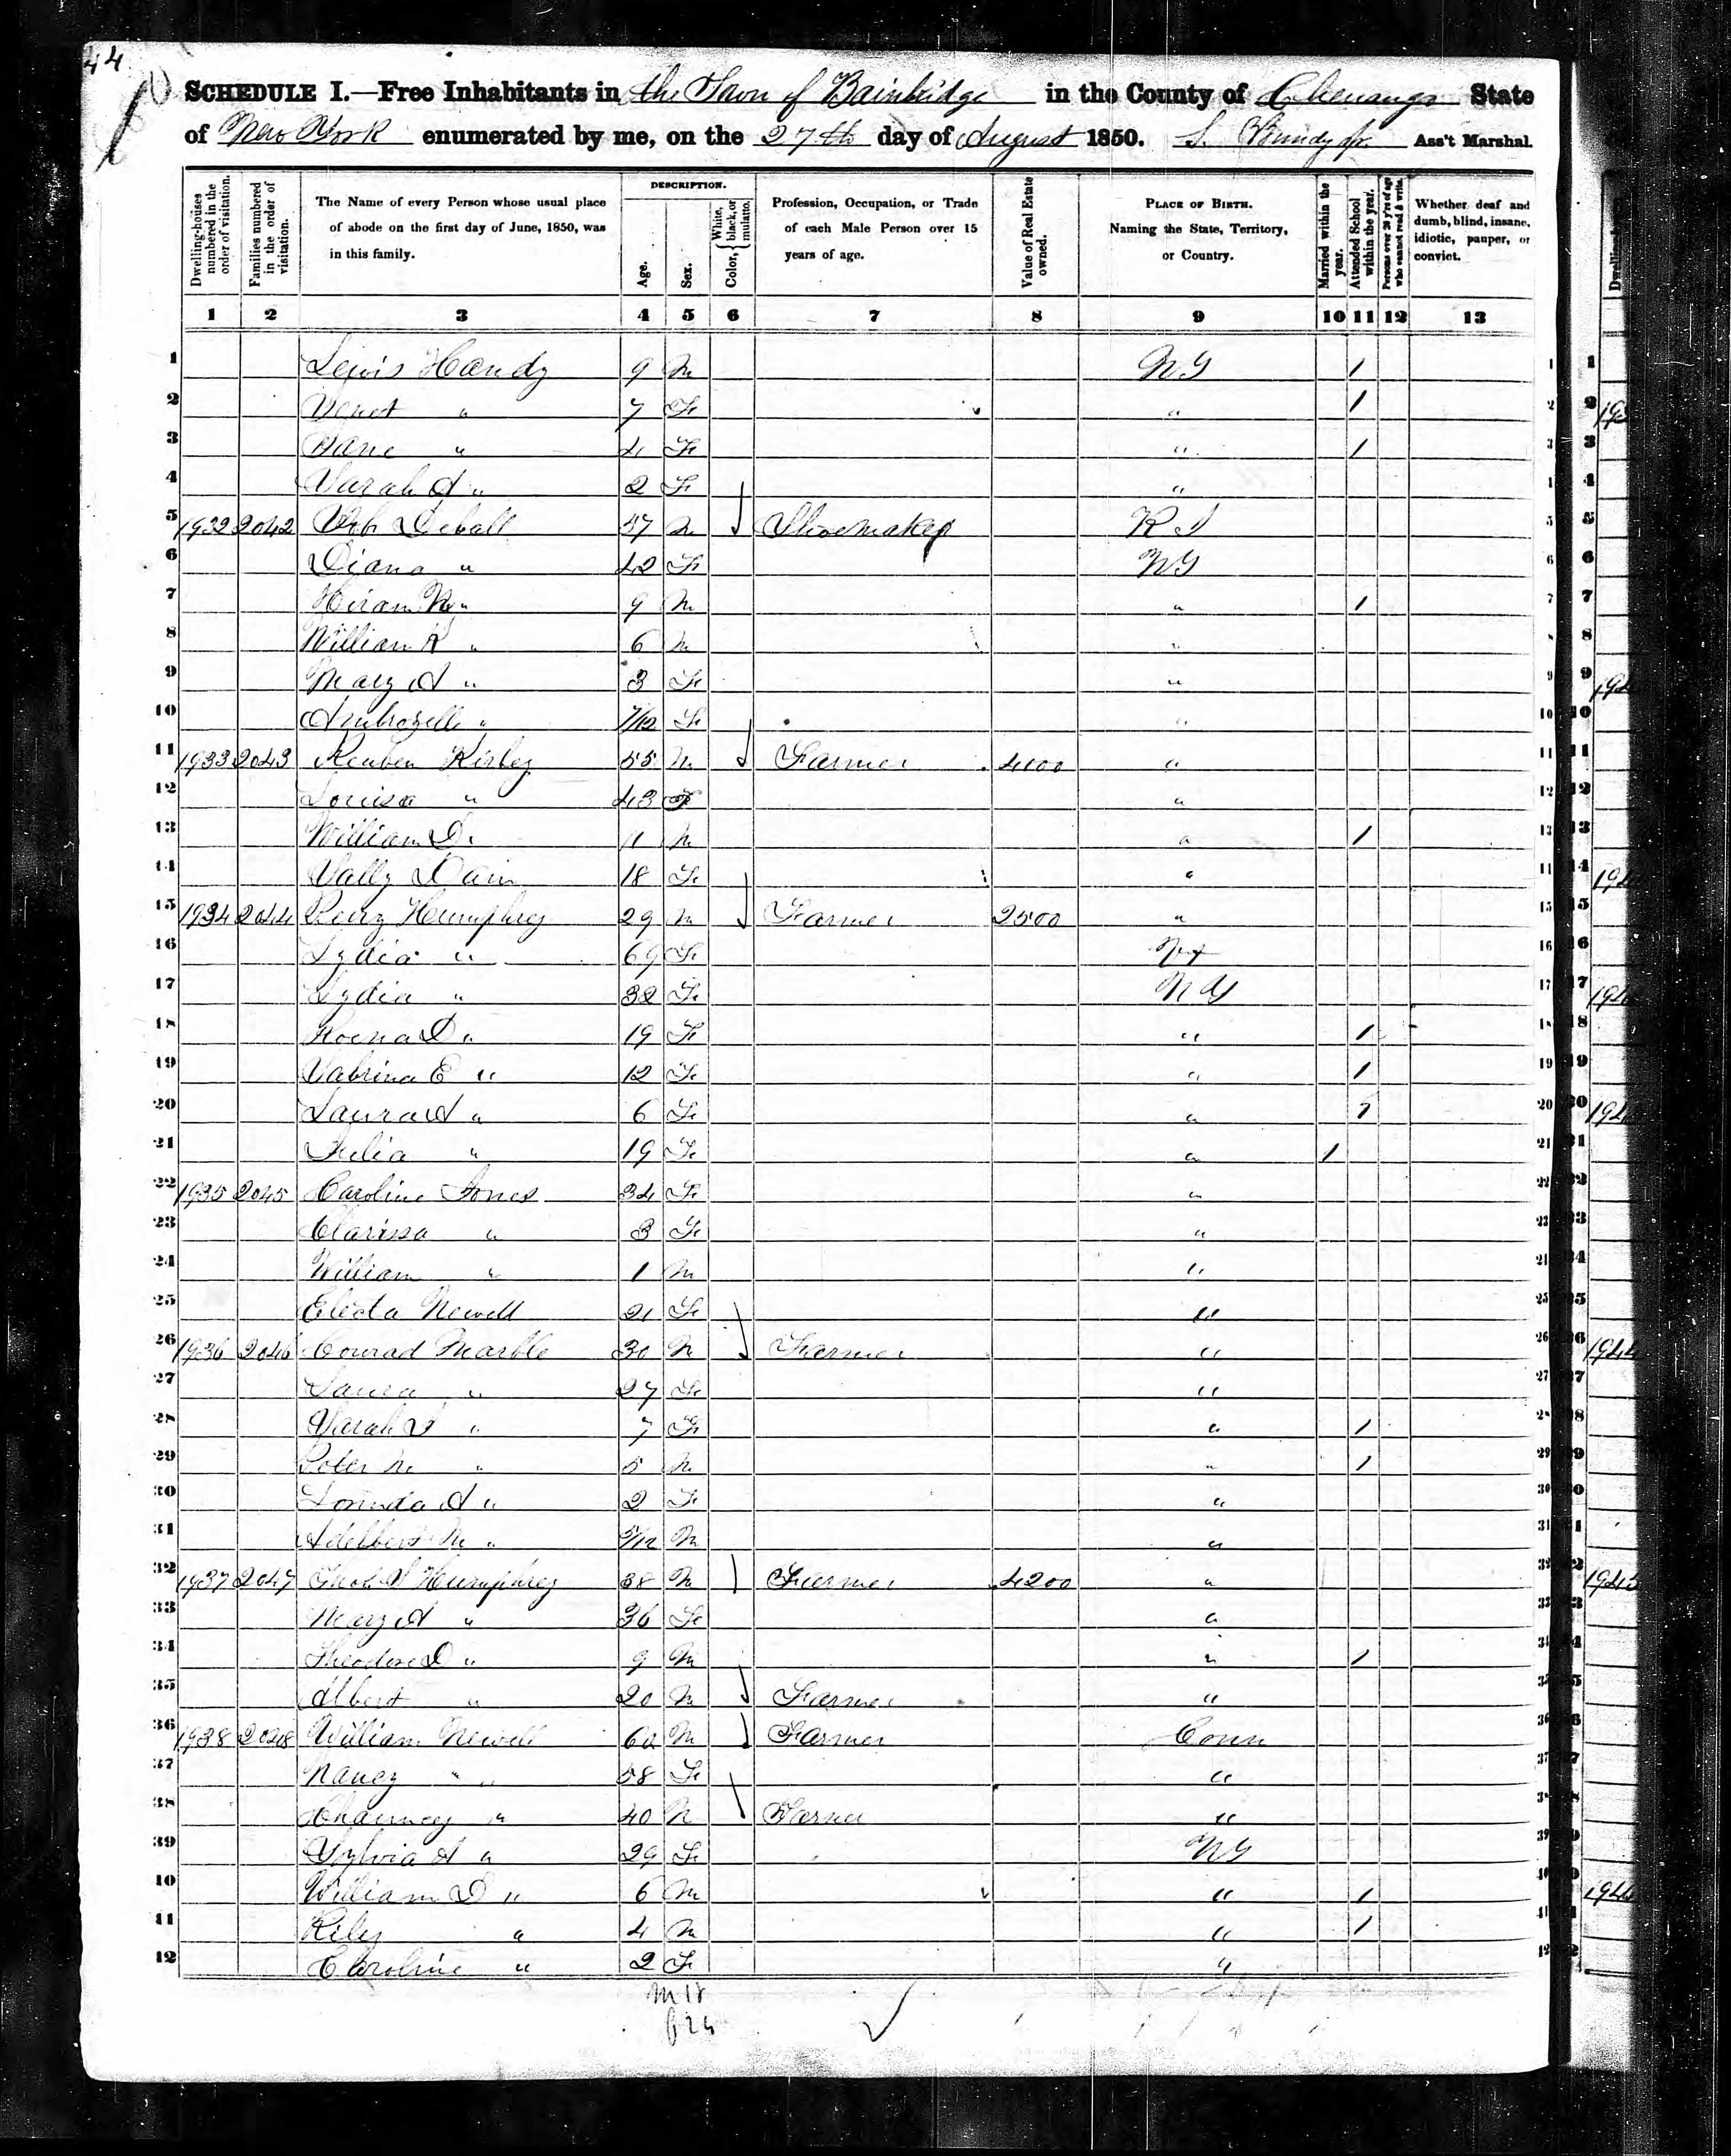 44
SCHEDULE I.—Free Inhabitants in the Town of Bainbridge in the County of Chenango State
of New York enumerated by me, on the 27th day of August 1850. S. Bundy Jr. Ass't Marshal.
Dwelling-houses numbered in the order of visitation.
Families numbered in the order of visitation.
The Name of every Person whose usual place of abode on the first day of June, 1850, was in this family.
DESCRIPTION.
Age.
Sex.
Color, White, black, or mulatto.
Profession, Occupation, or Trade of each Male Person over 15 years of age.
Value of Real Estate owned.
PLACE OF BIRTH. Naming the State, Territory, or Country.
Married within the year.
Attended School within the year.
Persons over 20 y'rs of age who cannot read & write.
Whether deaf and dumb, blind, insane, idiotic, pauper, or convict.
1 2 3 4 5 6 7 8 9 10 11 12 13
1 Lewis Handy 9 M NY / 1
2 " 7 F " / 2
3 Jane " 4 F " / 3
4 Sarah A " 2 F " 4
5 1932 2042 57 M Shoemaker R I 5
6 Diana " 42 F NY 6
7 Hiram " 9 M " / 7
8 William " 6 M " 8
9 Mary A " 3 F " 9
10 " 7/12 F " 10
11 1933 2043 Reuben Kirby 55 M Farmer 4100 " 11
12 Louisa " 43 F " 12
13 William D " 11 M " / 13
14 Sally Dain 18 F " 14
15 1934 2044 Perry Humphrey 29 M Farmer 2500 " 15
16 Lydia " 69 F 16
17 Lydia " 32 F NY 17
18 D " 19 F " / 18
19 Sabrina E " 12 F " / 19
20 Laura A " 6 F " 1 20
21 Julia " 19 F " / 21
22 1935 2045 Caroline Jones 34 F " 22
23 Clarissa " 3 F " 23
24 William " 1 M " 24
25 Electa Newell 21 F " 25
26 1936 2046 Conrad Marble 30 M Farmer " 26
27 Laura " 27 F " 27
28 Sarah " 7 F " / 28
29 Peter M " 5 M " / 29
30 Lorinda A " 2 F " 30
31 Adelbert M " 5/12 M " 31
32 1937 2047 Humphrey 38 M Farmer 4200 " 32
33 Mary A " 36 F " 33
34 Theodore D " 9 M " / 34
35 Albert " 20 M Farmer " 35
36 1938 2048 William Newell 62 M Farmer Conn 36
37 Nancy " 58 F " 37
38 Chauncey " 40 M Farmer " 38
39 Sylvia A " 29 F NY 39
40 William D " 6 M " / 40
41 Riley " 4 M " / 41
42 Caroline " 2 F " 42
M 18